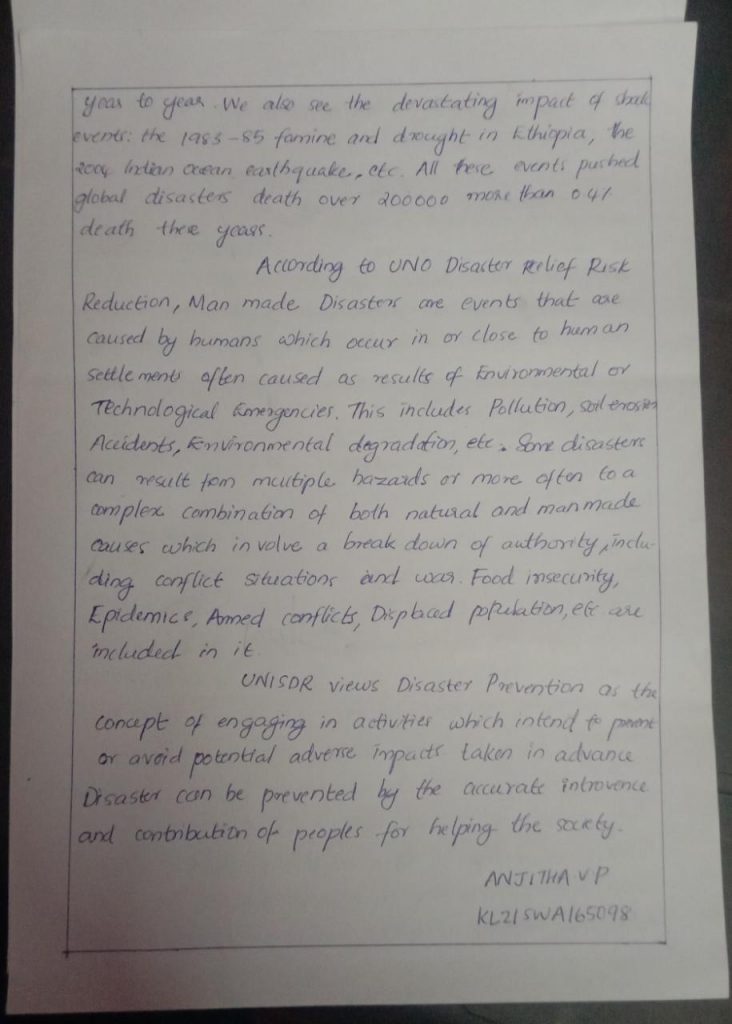 year to year. We also see the devastating impact of shock
events: the 1983-85 famine and drought in Ethiopia, the
2004 Indian Ocean earthquake, etc. All these events pushed
global disasters death over 200000 more than 0.4%
death these years.
According to UNO Disaster Relief Risk
Reduction, Man made Disasters are events that are
caused by humans which occur in or close to human
settlements often caused as results of Environmental or
Technological Emergencies. This includes Pollution, soil erosion
Accidents, Environmental degradation, etc. Some disasters
can result from multiple hazards or more often to a
complex combination of both natural and man made
causes which involve a break down of authority, inclu-
ding conflict situations and war. Food insecurity,
Epidemics, Armed conflicts, Displaced population, etc are
included in it.
UNISDR views Disaster Prevention as the
concept of engaging in activities which intend to prevent
or avoid potential adverse impacts taken in advance
Disaster can be prevented by the accurate introvence
and contribution of peoples for helping the society.
ANJITHA V P
KL21SWA165098